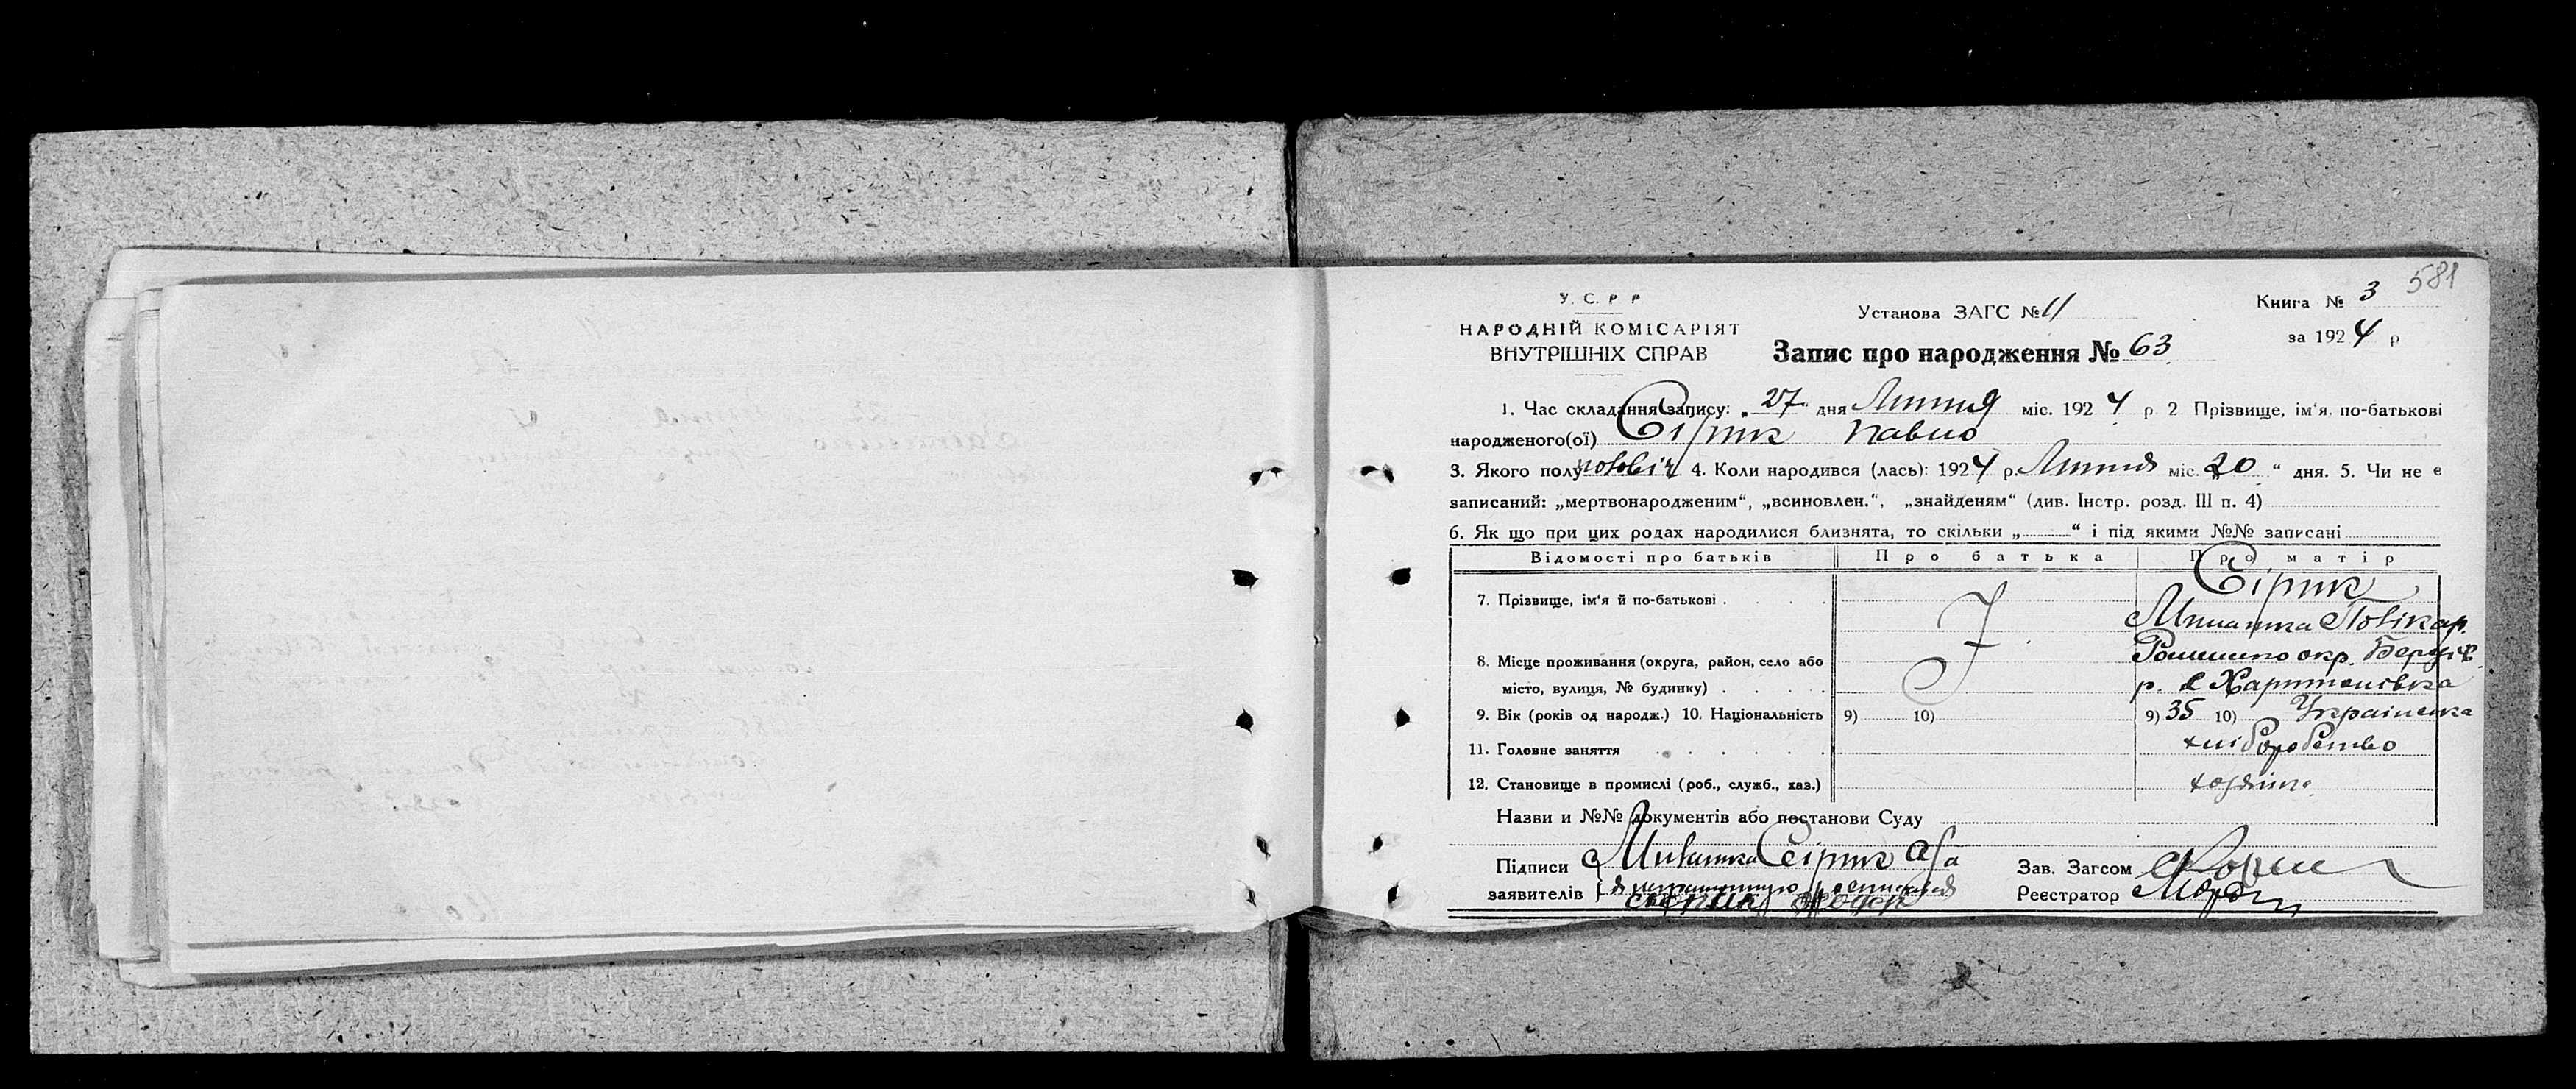 581
У. С. Р Р
НАРОДНІЙ КОМІСАРІЯТ
ВНУТРІШНІХ СПРАВ
Установа ЗАГС № 11
Книга № 3
за 1924 р
Запис про народження № 63
1. Час складання запису: „27“ дня Липня міс. 1924 р 2 Прізвище, ім'я, по-батькові
народженого(ої) Сірик Павло
3. Якого полу чоловіч 4. Коли народився (лась): 1924 р. Липня міс. „20“ дня. 5. Чи не є
записаний: „мертвонародженим“, „всиновлен.“, „знайденям“ (див. Інстр. розд. III п. 4)
6. Як що при цих родах народилися близнята, то скільки „ “ і під якими №№ записані
Відомості про батьків Про батька Про матір
7. Прізвище, ім'я й по-батькові . Сірик
Поликар.
8. Місце проживання (округа, район, село або окр. Бердич.
місто, вулиця, № будинку) . р. с Харитонівка
9. Вік (років од народж.) 10. Національність 9) 10) 9) 35 10) Українска
11. Головне заняття хліборобство
12. Становище в промислі (роб., служб., хаз.) хозяйка
Назви и №№ документів або постанови Суду
Підписи Сірик
заявителів
Зав. Загсом
Реєстратор